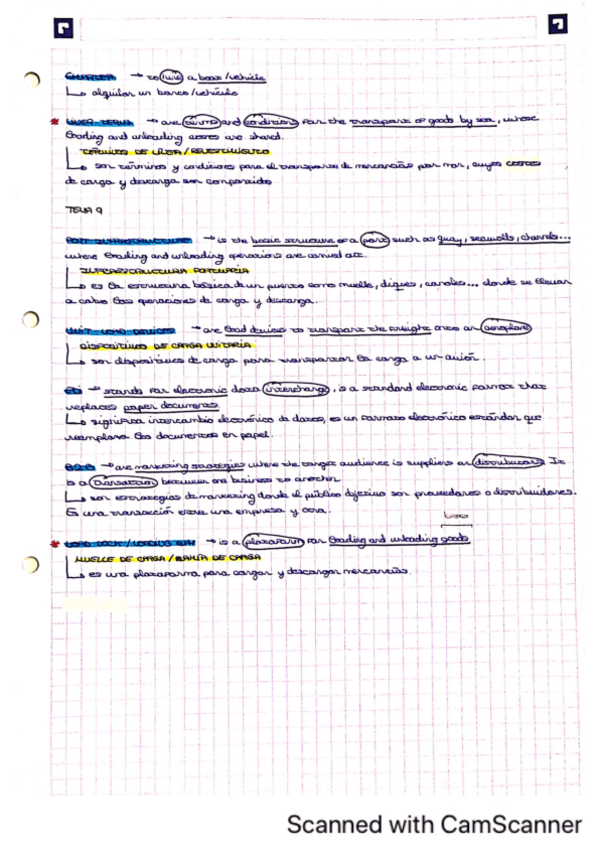 CHARTER → to hire a boat/vehicle
↳ alquilar un barco/vehículo
* LINER TERMS → are terms and conditions for the transport of goods by sea, whose
loading and unloading costs are shared.
TÉRMINOS DE LÍNEA /
↳ son términos y condiciones para el transporte de mercancías por mar, cuyos costes
de carga y descarga son compartidos
TEMA 9
PORT INFRASTRUCTURE → is the basic structure of a port such as quay, seawalls, channels...
where loading and unloading operations are carried out.
INFRAESTRUCTURA PORTUARIA
↳ es la estructura básica de un puerto como muelle, diques, canales... donde se llevan
a cabo las operaciones de carga y descarga.
UNIT LOAD DEVICES → are load devices to transport the freight onto an aeroplane
DISPOSITIVOS DE CARGA UNITARIA
↳ son dispositivos de carga para transportar la carga a un avión.
EDI → stands for electronic data interchange, is a standard electronic format that
replaces paper documents
↳ significa intercambio electrónico de datos, es un formato electrónico estándar que
reemplaza los documentos en papel.
B2B → are marketing strategies where the target audience is suppliers or distributors. It
is a transaction between one business to another
↳ son estrategias de marketing donde el público objetivo son proveedores o distribuidores.
Es una transacción entre una empresa y otra.
* LOAD DOCK / LOADING BAY → is a platform for loading and unloading goods
MUELLE DE CARGA / BAHÍA DE CARGA
↳ es una plataforma para cargar y descargar mercancías.
Scanned with CamScanner